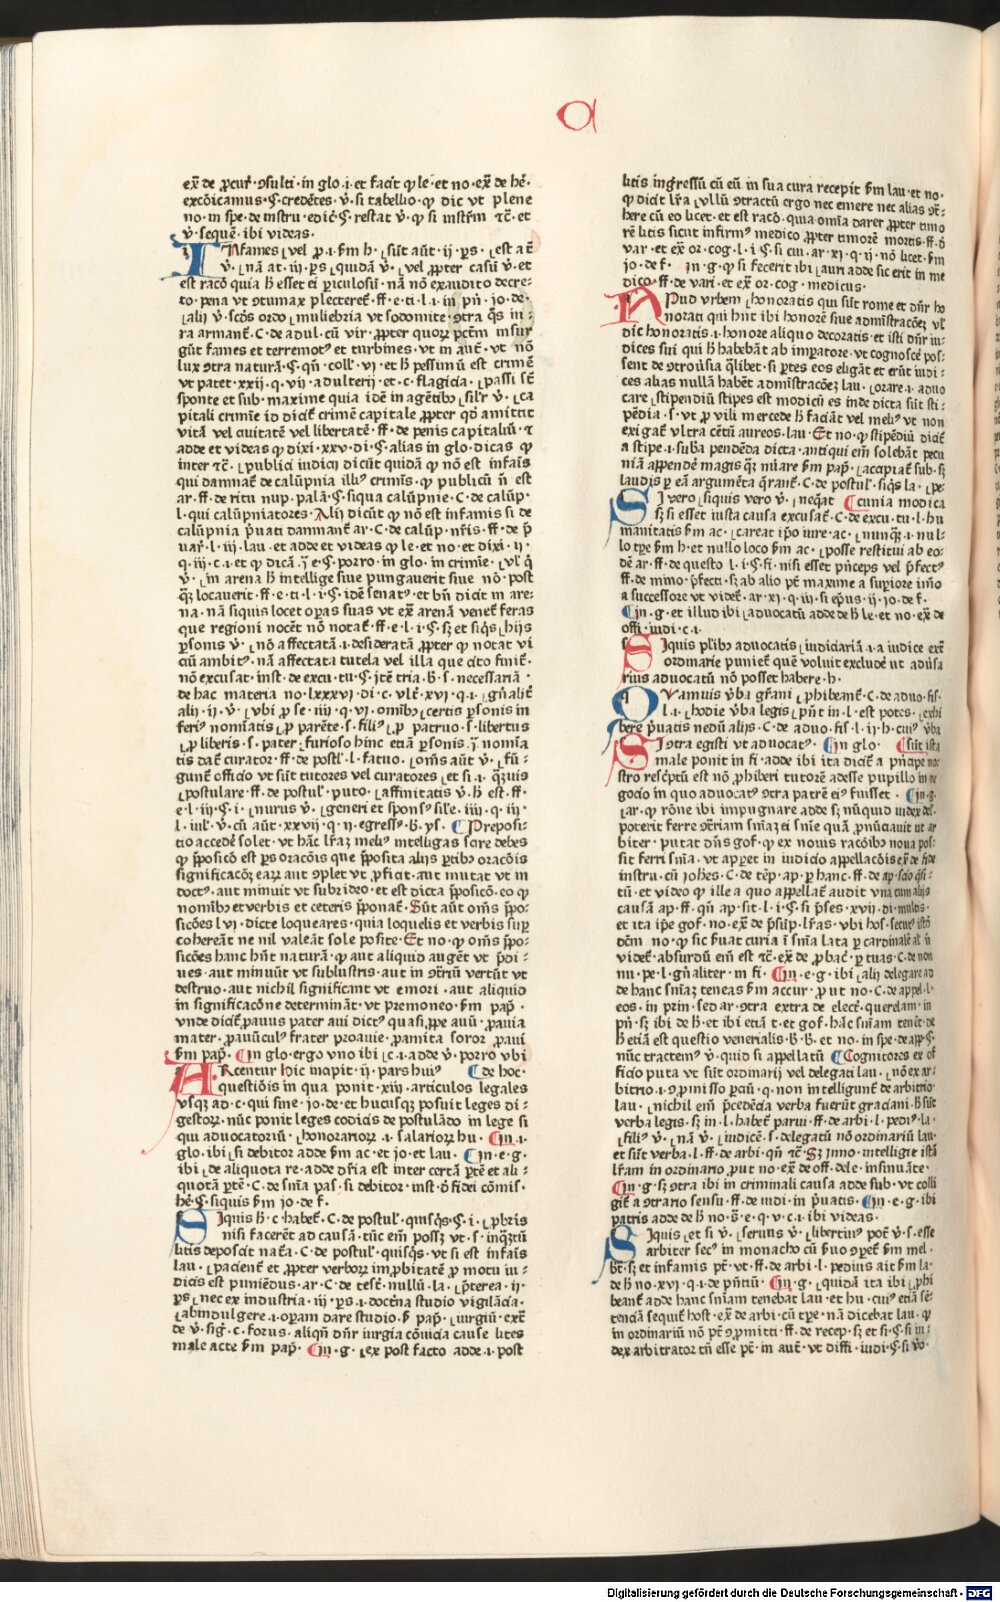 C
ex̄ de ꝓcur̄·ꝯsulti·in glo·i·et facit ꝙ le·et no·ex̄ de hē·
excōicamus·§·credētes·v̄·si tabellio·ꝙ dic vt plene
no·in spe·de instru·edic̄·§·restat v̄·ꝙ si instrm̄ ⁊c̄·et
v̄·sequē·ibi videas·
INfames
est racō quia h̄ esset ei ꝑiculosū·nā nō exaudito decre-
to·pena vt ꝯtumax plecteret̄·ff·e·ti·l·i·in pn̄·jo·de·
ra armant̄·C·de adul·cū vir·ꝓpter quoꝝ pctm̄ insur
gūt fames et terremotꝰ et turbines·vt in aut̄·vt nō
lux ꝯtra naturā·§·qn̄·coll·vi·et h̄ pessimū est crimē
vt patet·xxij·q·vij·adulterij·et·c·flagicia·
sponte et sub·maxime quia idē in agētibꝰ
capitali crimīe io dicit̄ crimē capitale ꝓpter qd̄ amittit
vitā vel ciuitatē vel libertatē·ff·de penis capitaliū·⁊
adde et videas ꝙ dixi·xxv·di·§·alias in glo·dicas ꝙ
inter ⁊c̄·publici iudicij dicūt quidā ꝙ nō est infāis
qui damnat̄ de calūpnia illꝰ crimīs·ꝙ publicū n̄ est
ar·ff·de ritu nup·palā·§·siqua calūpnie·C·de calūp·
l·qui calūpniatores·Alij dicūt ꝙ nō est infamis si de
calūpnia ꝓuati damnant̄ ar·C·de calūp·
uar̄·l·iij·lau·et adde et videas ꝙ le·et no·et dixi·ij·
q·iij·c·i·et ꝙ dicā·
v̄·in arena h̄ intellige siue pungauerit siue nō·post
q̄ꝫ locauerit·ff·e·ti·l·i·§·idē senatꝰ·et bn̄ dicit in are-
na·nā siquis locet oꝑas suas vt ex̄ arenā venet̄ feras
que regioni nocēt nō notat̄·ff·e·l·i·§·sꝫ et siqͥs
cū ambitꝰ·nā affectata tutela vel illa que cito finit̄·
nō excusat·inst·de excu·tu·§·
de hac materia no·lxxxvj·di·c·vlt̄·xvj·q·i·
ferīꝰ nomīatis
tis dat̄ curator·ff·de postl̄·l·fatuo·
gunt̄ officio vt sūt tutores vel curatores
postulare·ff·de postul̄·puto·affinitatis v̄·h̄ est·ff·
e·l·iij·§·i·nurus v̄·generi et sponsꝰ sile·iiij·q·iij·
Preposi-
tio accedē solet·vt hāc lr̄aꝫ meliꝰ intelligas scire debes
ꝙ p̄posicō est ꝑs oracōis que p̄posita alijs ꝑtibꝰ oracōis
significacōꝫ eaꝝ aut ꝯplet vt ꝓficit·aut mutat vt in
doctꝰ·aut minuit vt subrideo·et est dicta p̄posicō·eo ꝙ
nomībꝰ et verbis et ceteris p̄ponat̄·Sūt aūt om̄s p̄po-
sicōes lvi·dicte loqueares·quia loquelis et verbis suꝑ
cohereāt ne nil valeāt sole posite·Et no·ꝙ om̄s p̄po-
sicōes hanc hn̄t naturā·ꝙ aut aliquid augēt vt p̄di-
ues·aut minuūt vt sublustris·aut in ꝯtrariū vertūt vt
destruo·aut nichil significant vt emori·aut aliquid
in significacōne determināt·vt premoneo·ẜm pap̄·
vnde dicit̄ ꝓauus pater aui dictꝰ quasi ꝓpe auū·ꝓauia
mater·ꝓauūculꝰ frater proauie·ꝓamita soror ꝓaui
ẜm pap̄·In glo·ergo vno ibi c·i·adde v̄·porro vbi
ARcentur hic incipit·ij·pars huiꝰ de hoc·
questiōis in qua ponit·xiij·articulos legales
vsqꝫ ad·c·qui sine·jo·de·et hucusqꝫ posuit leges di-
gestoꝝ·nūc ponit leges codicis de postulādo in lege si
qui aduocatoriū·honorarioꝝ·i·salarioꝝ hu·In·i·
glo·ibi si debitor adde ẜm ac·et jo·et lau·In·e·g·
ibi de aliquota re·adde dr̄ia est inter certā ꝑtē et ali-
quotā ꝑtē·C·de snīa pas·si debitor·inst·
hē·§·siquis ẜm jo·de f·
SIquis h̄·c·habet̄·C·de postul̄·quisqͥs·§·i·
nisi facerēt ad causā·
litis deposcit nat̄a·C·de postul̄·quisqͥs·vt si est infāis
lau·pacient̄ et ꝓpter verboꝝ imꝓbitatē ꝓ motu iu-
dicis est puniēdus·ar·C·de test̄·nullū·la·p̄terea·ij·
ꝑs·nec ex industria·iij·ꝑs·i·doctrīa studio vigilācia·
abindulgere·i·oꝑam dare studio·
de v̄·siḡ·c·forus·aliqn̄ dn̄r iurgia cōuicia cause lites
male acte ẜm pap̄·In·g·ex post facto adde·i·post
litis ingressū cū eū in sua cura recepit ẜm lau·et no·
ꝙ dicit lr̄a vllū ꝯtractū ergo nec emere nec alias ꝯtra-
here cū eo licet·et est racō·quia om̄ia daret ꝓpter timo
rē litis sicut infirmꝰ medico ꝓpter timorē mortis·ff·d̄
var·et ex̄ or·cog·l·i·§·si cui·ar·xj·q·ij·nō licet·ẜm
jo·de f·In·g·ꝙ si fecerit ibi auri adde sic erit in me
dico·ff·de vari·et ex̄ or·cog·medicus·
APud vrbem honoratis qui sūt rome et dn̄r ho
norati qui hn̄t ibi honorē siue administracōeꝫ vl̄
dic honoratis·i·honore aliquo decoratis·et isti dn̄r iu-
dices sui qui h̄ habebāt ab imꝑatore·vt cognoscēt pos-
sent de ꝯtrouͥsia qͣlibet·si ꝑtes eos eligāt et erūt iudi-
ces alias nullā habēt administracōeꝫ lau·orare·i·aduo
care stipendiū stipes est modicū es inde dicta sūt sti-
pēdia·s·vt ꝓ vili mercede h̄ faciāt vel meliꝰ vt non
exigat̄ vltra cētū aureos·lau·Et no·ꝙ stipēdiū dicit̄
a stipe·i·subͣa pendēda dicta·antiqui em̄ solebāt pecu
niā appendē magis qͣꝫ nūare ẜm pap̄·accipiat̄ sub·sꝫ
laudis ꝑ eā argumēta qͣrant̄·C·de postul̄·siqͥs·la·pe-
SI vero siquis vero v̄·neqāt cunia modica
sꝫ si esset iusta causa excusat̄·C·de excu·tu·l·hu
manitatis ẜm ac·careat ipō iure·ac·nunqͣꝫ·i·nul-
lo tꝑe ẜm h·et nullo loco ẜm ac·posse restitui ab eo-
dē ar·ff·de questo·l·i·§·fi·nisi esset pn̄ceps vel p̄fectꝰ
ff·de mino·p̄fecti·sꝫ ab alio pt̄ maxime a suꝑiore īmo
a successore vt videt̄·ar·xj·q·iij·si ep̄us·ij·jo·de f·
In·g·et illud ibi aduocatū adde de h̄ le·et no·ex̄ de
offi·iudi·c·i·
SIquis pl̄ibꝰ aduocatis iudiciariā·i·a iudice ext̄
ordinarie puniet̄ quē voluit excludē ut aduͥsa
rius aduocatū nō posset habere·h·
QVamuis v̄ba grͣani phibeant̄·C·de aduo·fis·
l·i·hodie v̄ba legis pn̄t in·l·est potes·exhi
bere ꝓuatis nedū alijs·C·de aduo·fis·l·ij·h·cuiꝰ v̄ba
SI ꝯtra egisti vt aduocatꝰ·In glo·sūt ista
male ponit in fi·adde ibi ita dicit̄ a pn̄cipe no-
stro rescptū est nō ꝓhiberi tutorē adesse pupillo in ne
gocio in quo aduocatꝰ ꝯtra patrē eiꝰ fuisset·In·g·
ar·ꝙ rōne ibi impugnare adde sꝫ nūquid iudex del·
poterit ferre ꝯtr̄iam snīaꝫ ei snīe quā ꝓnūciauit ut ar
biter·putat dn̄s gof·ꝙ ex nouis racōibꝰ noua pos-
sit ferri snīa·vt apꝑet in iudicio appellacōis ex̄ de fide
instru·cū johēs·C·de tēp·ap·ꝑ hanc·ff·de ap·scio
tū·et video ꝙ ille a quo appellat̄ audit vna cum alijs
causā ap·ff·qn̄ ap·sit·l·i·§·si p̄ses·xvij·di·multis·
et ita ipē gof·no·ex̄ de p̄sūp·lr̄as·vbi hos·
dem̄ no·ꝙ sic ẜuat curia ī snīa lata ꝑ cardinalē
videt̄·absurdū em̄ est ⁊c̄·ex̄ de ꝓbac̄·ꝑ tuas·C·de non
nu·pe·l·gn̄aliter·in fi·In·e·g·ibi alij delegare ad
de hanc snīaꝫ teneas ẜm accur·ꝓut no·C·de appel·l·
eos·in prin·sed ar·ꝯtra extra de elect̄·querelam·in
pn̄·sꝫ ibi de h̄·et ibi etiā t·et gof·hāc snīam tenēt·de
h̄ etiā est questio venerialis·
nūc tractemꝰ v̄·quid si appellatū Cognitores ex of
ficio puta vt sūt ordinarij vel delegati lau·nō ex ar-
bitrio·i·ꝯpmisso ꝑciū·q·non intelligunt̄ de arbitrio
lau·nichil em̄ p̄cedēcia verba fuerūt graciani·h̄ sūt
verba legis·sꝫ in·l·habet̄ parui·ff·de arbi·l·pediꝰ·la·
filiꝰ v̄·nā v̄·iudicē·s·delegatū nō ordinariū lau·
et sūt verba·l·ff·de arbi·qn̄ ⁊c̄·Sꝫ Inno·intelligit istā
lr̄am in ordinario ꝓut no·ex̄ de off·dele·insinuāte·
In·g·sꝫ ꝯtra ibi in criminali causa adde sub·vt colli
git̄ a ꝯtrario sensu·ff·de iudi·in ꝓuatis·In·e·g·ibi
patris adde de h̄ no·
SIquis et si v̄·seruus v̄·libertinꝰ pot̄ v̄·s·esse
arbiter secꝰ in monacho cū ẜuo ꝯꝑet̄ ẜm mel·
bt̄·sꝫ et infamis pt̄·vt·ff·de arbi·l·pedius ait ẜm la·
de h̄ no·xvj·q·i·de pn̄tiū·In·g·quidā ita ibi phi
beant̄ adde hanc snīam tenebat lau·et hu·cuiꝰ etiā sē-
tenciā sequit̄ host·ex̄ de arbi·cū tꝑe·nā dicebat lau·ꝙ
in ordinariū nō pt̄ ꝯpmitti·ff·de recep·sꝫ et si·§·si iu-
dex arbitrator tn̄ esse pt̄·in aut̄·vt diffi·iudi·§·si v̄o·
Digitalisierung gefördert durch die Deutsche Forschungsgemeinschaft - DFG